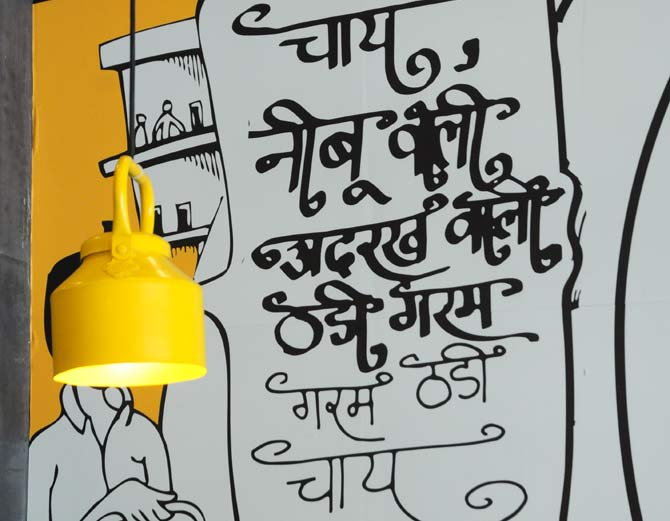 चाय
नीबू वाली
अदरख वाली
ठंडी गरम
गरम ठंडी
चाय